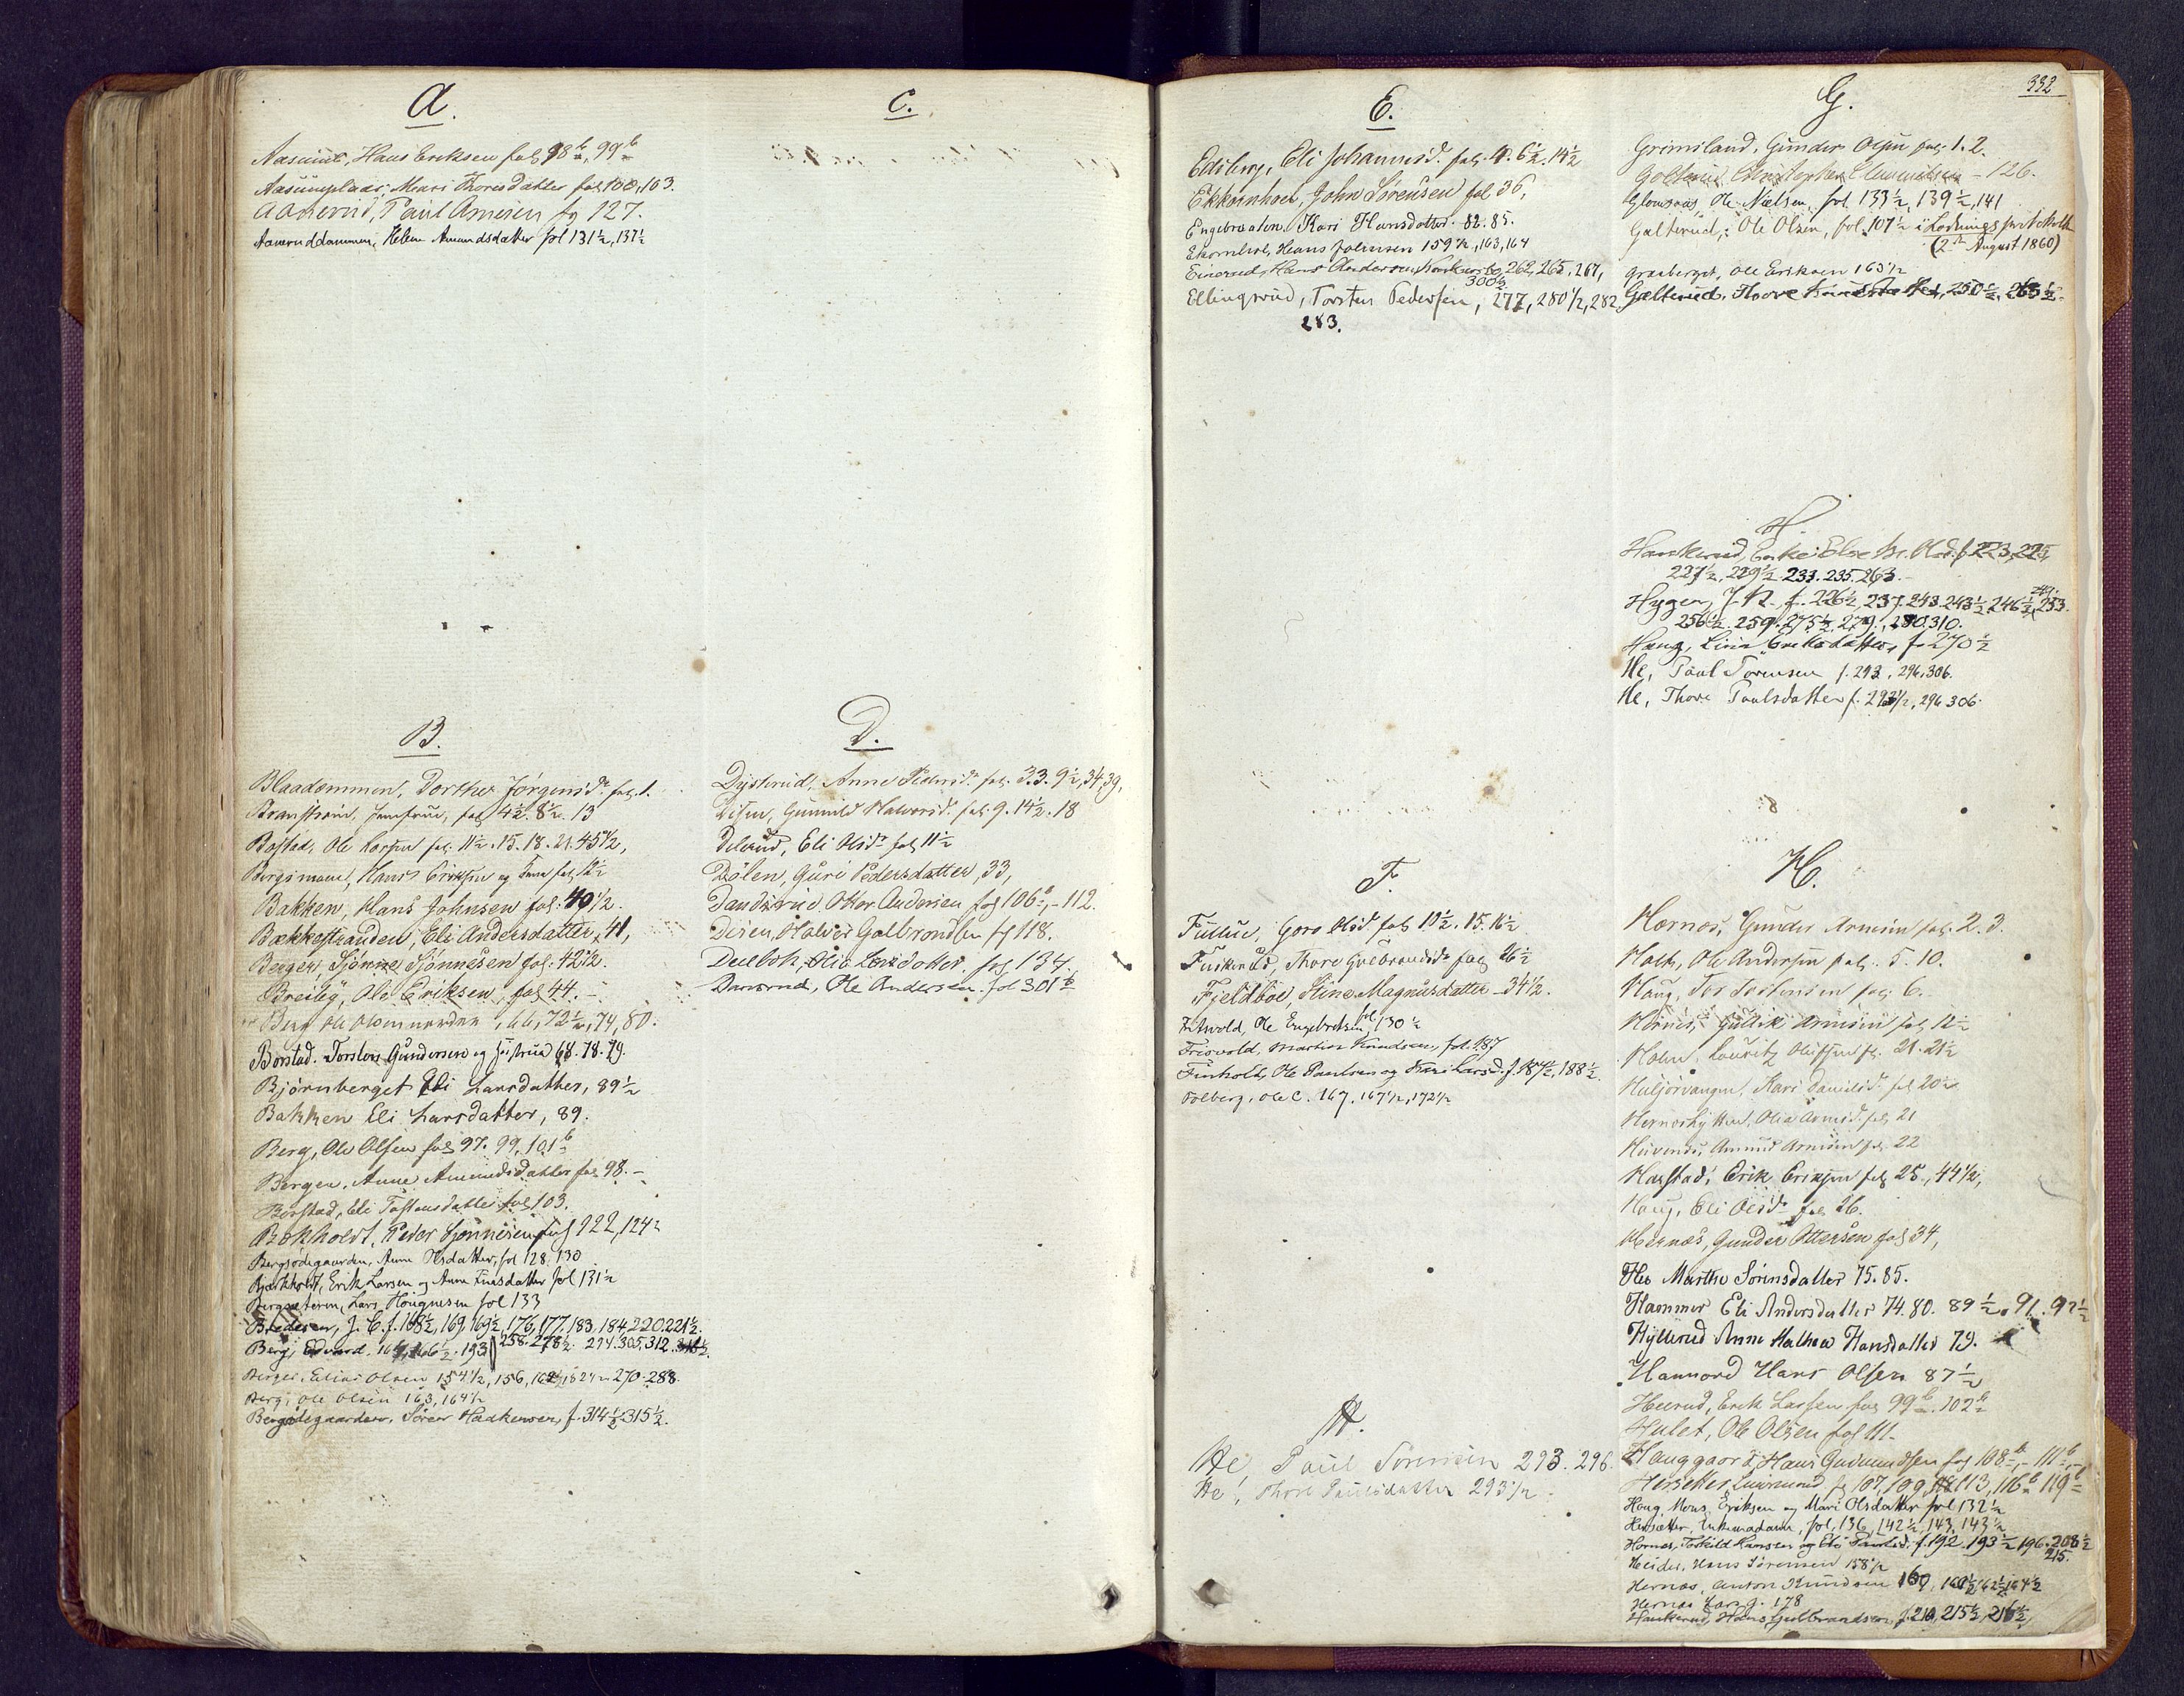 A.
Hans Eriksen fol 98b, 99b
Mari Thoresdatter fol 100, 103.
Paul Arnesen fol 127.
Aaneruddammen, Helene Amundsdatter fol 131½, 137½
B.
Blaadammen, Dorthe Jörgensdr fol. 1.
fol 4½. 8½. 13
Bostad, Ole Larsen fol. 11½. 15. 18. 21. 45½,
Hans Eriksen og
Bakken, Hans Johnsen fol: 40½.
Bækkestranden, Eli Andersdatter, 41,
Berger, Sjönne Sjönnesen fol. 42½.
Breiley, Ole Eriksen, fol 44.
Berg Ole 66, 72½, 74, 80.
Borstad. Torsten Gundersen og Hustrue 68. 78. 79.
Björnberget Eli Larsdatter, 89½
Bakken Eli Larsdatter, 89.
Berg, Ole Olsen fol 97. 99, 101b
Bergen, Anne Amundsdatter fol 98.
Borstad, Eli Tostensdatter fol 103.
Bokholdt, Peder Sjönnesen fol 122, 124½
Bergsödegaarden, Anne Olsdatter, fol 128, 130
Erik Larsen og Anne fol 131½
Bergsæteren, Lars Höugnesen fol 133
Bredesen, J. C. f. 168½, 169, 169½, 176, 177, 183, 184, 220, 221½.
Berg, Edvard. 166½. 193 258. 278½. 294. 305. 312.
Berger, Elias Olsen 154½, 156, 270. 288.
Berg, Ole Olsen 163, 164½
Bergödegaarden, Sören f. 314½ 315½.
C.
D.
Dysterud, Anne Pedersdr fol. 33. 9½, 34, 39,
Disen, Gunnild Halvorsdr. fol. 9. 14½. 18
Eli Olsdr fol 11½
Dölen, Guri Pedersdatter, 33,
Otter Andersen fol 106b, - 112.
Disen, Halvor Gulbrandsen fol 118.
Olia Larsdatter. fol 134.
Ole Andersen. fol 301½
332
E.
Edsberg, Eli Johannesd. fol. 4. 6½. 14½
Ekkornhol, John Sörensen fol 36,
Engebraaten. Kari Hansdatter. 82. 85.
Ekornhol, Hans Johnsen 159½, 163, 164
Einerud, Hans Andersen 262, 265, 267,
300½
Ellingsrud, Torsten Pedersen, 277, 280½, 282,
283.
F.
Goro Olsd. fol 10½. 15. 16½
Funkerud, Thore Gulbrandsdr fol 26½
Fjeldboe, Stine Magnusdatter 34½.
Ole Engebretsen, fol 130½
Martin Knudsen, fol. 187
Finholdt, Ole Paulsen og Kari Larsd. f. 187½, 188½.
Folberg, Ole C. 167. 167½, 172½
H.
He, Paul Sörensen 293. 296.
He, Thore Paulsdatter 293½.
G.
Grimsland, Gunder Olsen fol. 1. 2.
Galterud, Christopher Clemmetsen - 126.
Glomsaas, Ole Nielsen, fol. 133½, 139½, 141
Galterud, Ole Olsen, fol. 107½ i
(2den August 1860)
Graaberget, Ole Eriksen 163½
Galterud, Thore 250½, 265½
H.
Hankerud, Enke Else f. 223, 225,
227½, 229½. 233. 235. 263.
Hygen, J. N. f. 226½, 237. 243. 243½. 246½. 253.
256½. 259. 275½. 279. 280. 310.
Haug, Lina Eriksdatter, f. 270½
He, Paul Sörensen f. 293. 296, 306.
He, Thore Paulsdatter f. 293½, 296 306.
H.
Hernæs, Gunder Arnesen fol. 2. 3.
Holth, Ole Andersen fol. 5. 10.
Haug, Tor Tostensen fol. 6.
Hernæs, Gullik Arnesen fol 12½
Holm, Lauritz Olufsen fol. 21. 21½
Kari Danielsd. fol 20½
Olia Arnesd. fol. 21
Amund Arnesen fol. 22
Harstad, Erik Eriksen fol 25, 44½,
Haug, Eli Olsdr fol 26.
Hernæs, Gunder Ottersen fol 34,
Hes Marthe Sörensdatter 75. 85.
Hammer Eli Andersdatter 74. 80. 89½. 91. 92½
Hyllerud Anne Mathea Hansdatter 79.
Hammer Hans Olsen 87½
Heerud, Erik Larsen fol 99b. 102b
Hulet, Ole Olsen fol 111.
Hauggaard, Hans Gudmundsen fol 108b, - 111b,
fol 107, 109, 113, 116b 119b
Haug, Mons Eriksen og Mari Olsdatter fol 132½
Enkemadam, fol. 136, 142½, 143, 143½
Hornes, Torkild Hansen og Eli f. 192. 193½ 196. 208½
215.
Heider, Hans Sörensen 158½
Hernæs, Anton Knudsen 160, 162½, 164½
Hernæs Lars J. 178
Hankerud, Hans Gulbrandsen, f. 210, 215½, 216½,